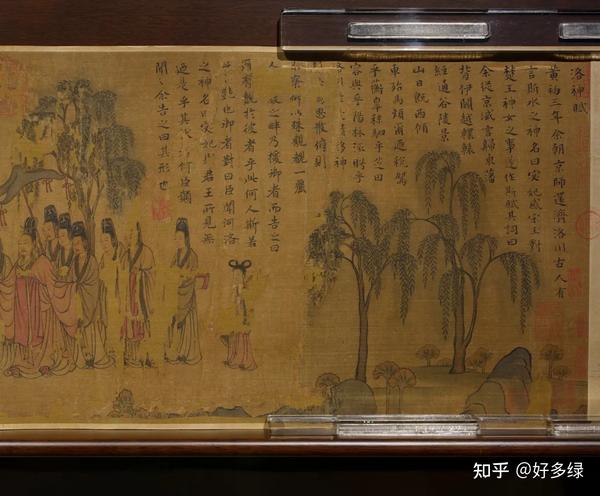 洛神賦
黃初三年余朝京師還濟洛川古人有
言斯水之神名曰宓妃感宋玉對
楚王神女之事遂作斯賦其詞曰
余從京域言歸東藩
背伊闕越轘轅
經通谷陵景
山日既西傾
車殆馬煩爾迺稅駕
乎蘅皋秣駟乎芝田
容與乎陽林流眄乎
洛川於是精移神
思散俯則
未察仰以殊觀覩一麗
人 之畔乃援御者而告之曰
爾有覿於彼者乎此何人斯若
之豔也御者對曰臣聞河洛
之神名曰宓妃則君王所見無
迺是乎其狀若何臣願
聞之余告之曰其形也
知乎 @好多绿